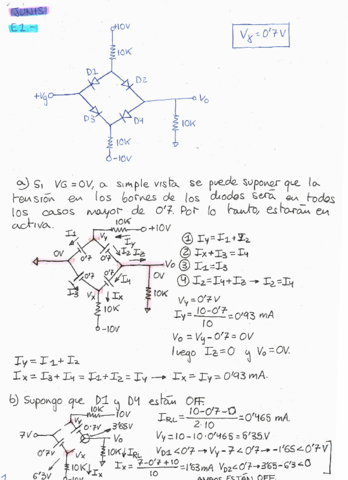 JUN15
E1-
+10V
Vγ = 0'7V
10K
D1
D2
+VG
Vo
D3
D4
10K
10K
-10V
a) Si VG = 0V, a simple vista se puede suponer que la
tensión en los bornes de los diodos será en todos
los casos mayor de 0'7. Por lo tanto, estarán en
activa.
10K
+10V
I1
Vy
Iy
0'7
0'7
I2
Iz
0V
0V
Vo
0'7
0'7
I3
I4
Vx
Ix
10K
10K
-10V
① Iy = I1 + I2
② Ix + I3 = I4
③ I1 = I3
④ I2 = I4 + Iz → I2 = I4
Vy = 0'7V
Iy = 10-0'7 / 10 = 0'93 mA
Vo = Vy - 0'7 = 0V
luego Iz = 0 y Vo = 0V.
Iy = I1 + I2
Ix = I3 + I4 = I1 + I2 = Iy → Ix = Iy = 0'93 mA.
b) Supongo que D1 y D4 están OFF.
10K
10V
Vy
0'7V
3'85V
7V
Vo
0'7V
Vx
10K
IRL
6'3V
10K
Ix
IRL = 10-0'7-0 / 2·10 = 0'465 mA
Vy = 10-10·0'465 = 5'35V
VD1 < 0'7 → Vy - 7 < 0'7 → -1'65 < 0'7V
Ix = 7-0'7+10 / 10 = 1'63 mA